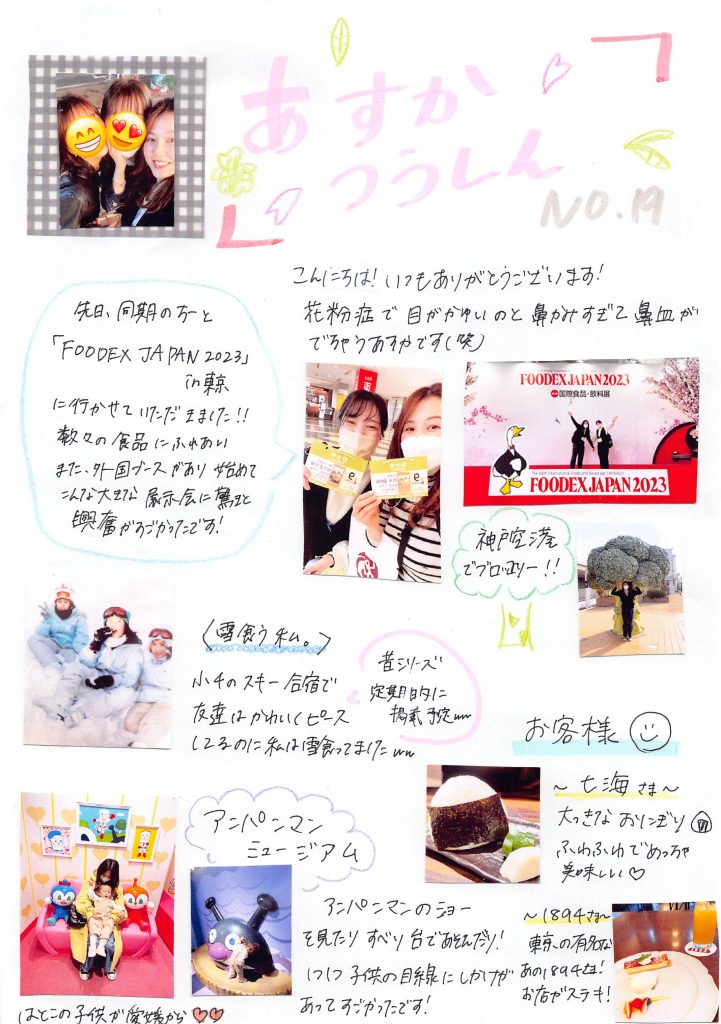 あすか
つうしん
NO.19
こんにちは!いつもありがとうございます!
花粉症で目がかゆいのと鼻かみすぎて鼻血が
でちゃうあすかです(笑)
先日、同期の方と
「FOODEX JAPAN 2023」
in東京
に行かせていただきました!!
数々の食品にふれあい
また、外国ブースがあり始めて
こんな大きな展示会に驚きと
興奮がすごかったです!
FOODEX JAPAN 2023
国際食品・飲料展
FOODEX JAPAN 2023
神戸空港
でブロッコリー!!
〈雪食う私。〉
小4のスキー合宿で
友達はかわいくピース
してるのに私は雪食ってましたww
昔シリーズ
定期的に
掲載予定ww
お客様
～七海さま～
大っきなおりにぎり
ふわふわでめっちゃ
美味しい♡
アンパンマン
ミュージアム
アンパンマンのショー
を見たりすべり台であそんだり!
1つ1つ子供の目線にしかけが
あってすごかったです!
～1894さま～
東京の有名な
あの1894さま!
お店がステキ!
はとこの子供が愛媛から♡♡